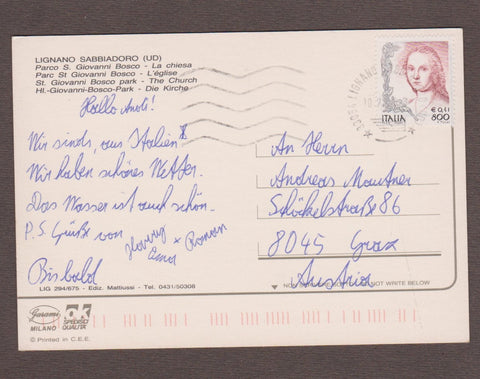 LIGNANO SABBIADORO (UD)
Parco S. Giovanni Bosco - La chiesa
Parc St Giovanni Bosco - L'église
St. Giovanni Bosco park - The Church
Hl.-Giovanni-Bosco-Park - Die Kirche
Hallo Andi!
Wir sinds, aus Italien!
Wir haben schönes Wetter.
Das Wasser ist auch schön.
P.S. Grüße von
+ Roman
Bis bald
LIG 294/675 - Ediz. Mattiussi - Tel. 0431/50308
Garami
MILANO
QUALITÀ
© Printed in C.E.E.
33054 LIGNANO
ITALIA
€ 0,41
800
An Herrn
Andreas Mautner
Schöckelstraße 86
8045 Graz
Austria
NOT WRITE BELOW